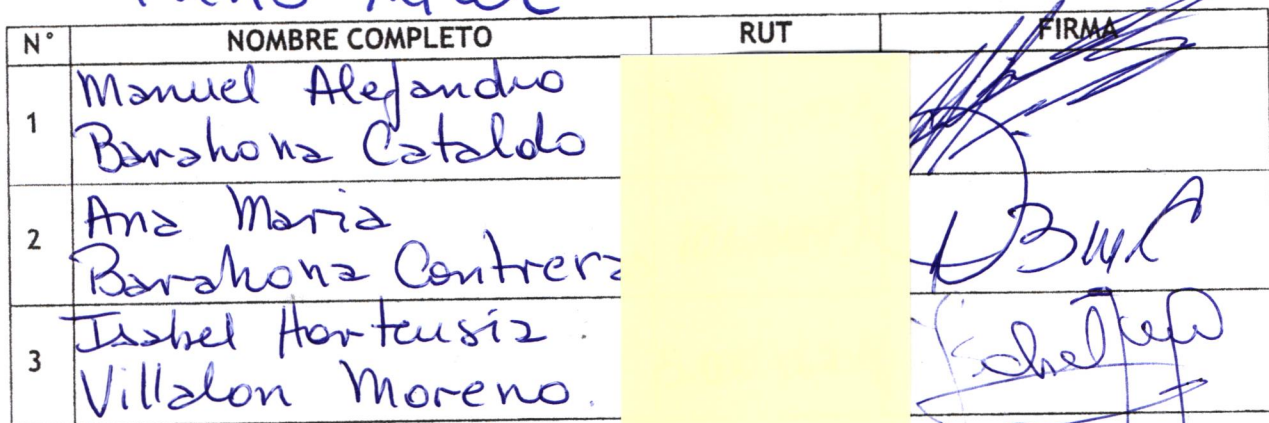 N° NOMBRE COMPLETO RUT FIRMA
1 Manuel Alejandro
Barahona Cataldo
2 Ana Maria
Barahona Contrera
3 Isabel Hortensia
Villalon Moreno.